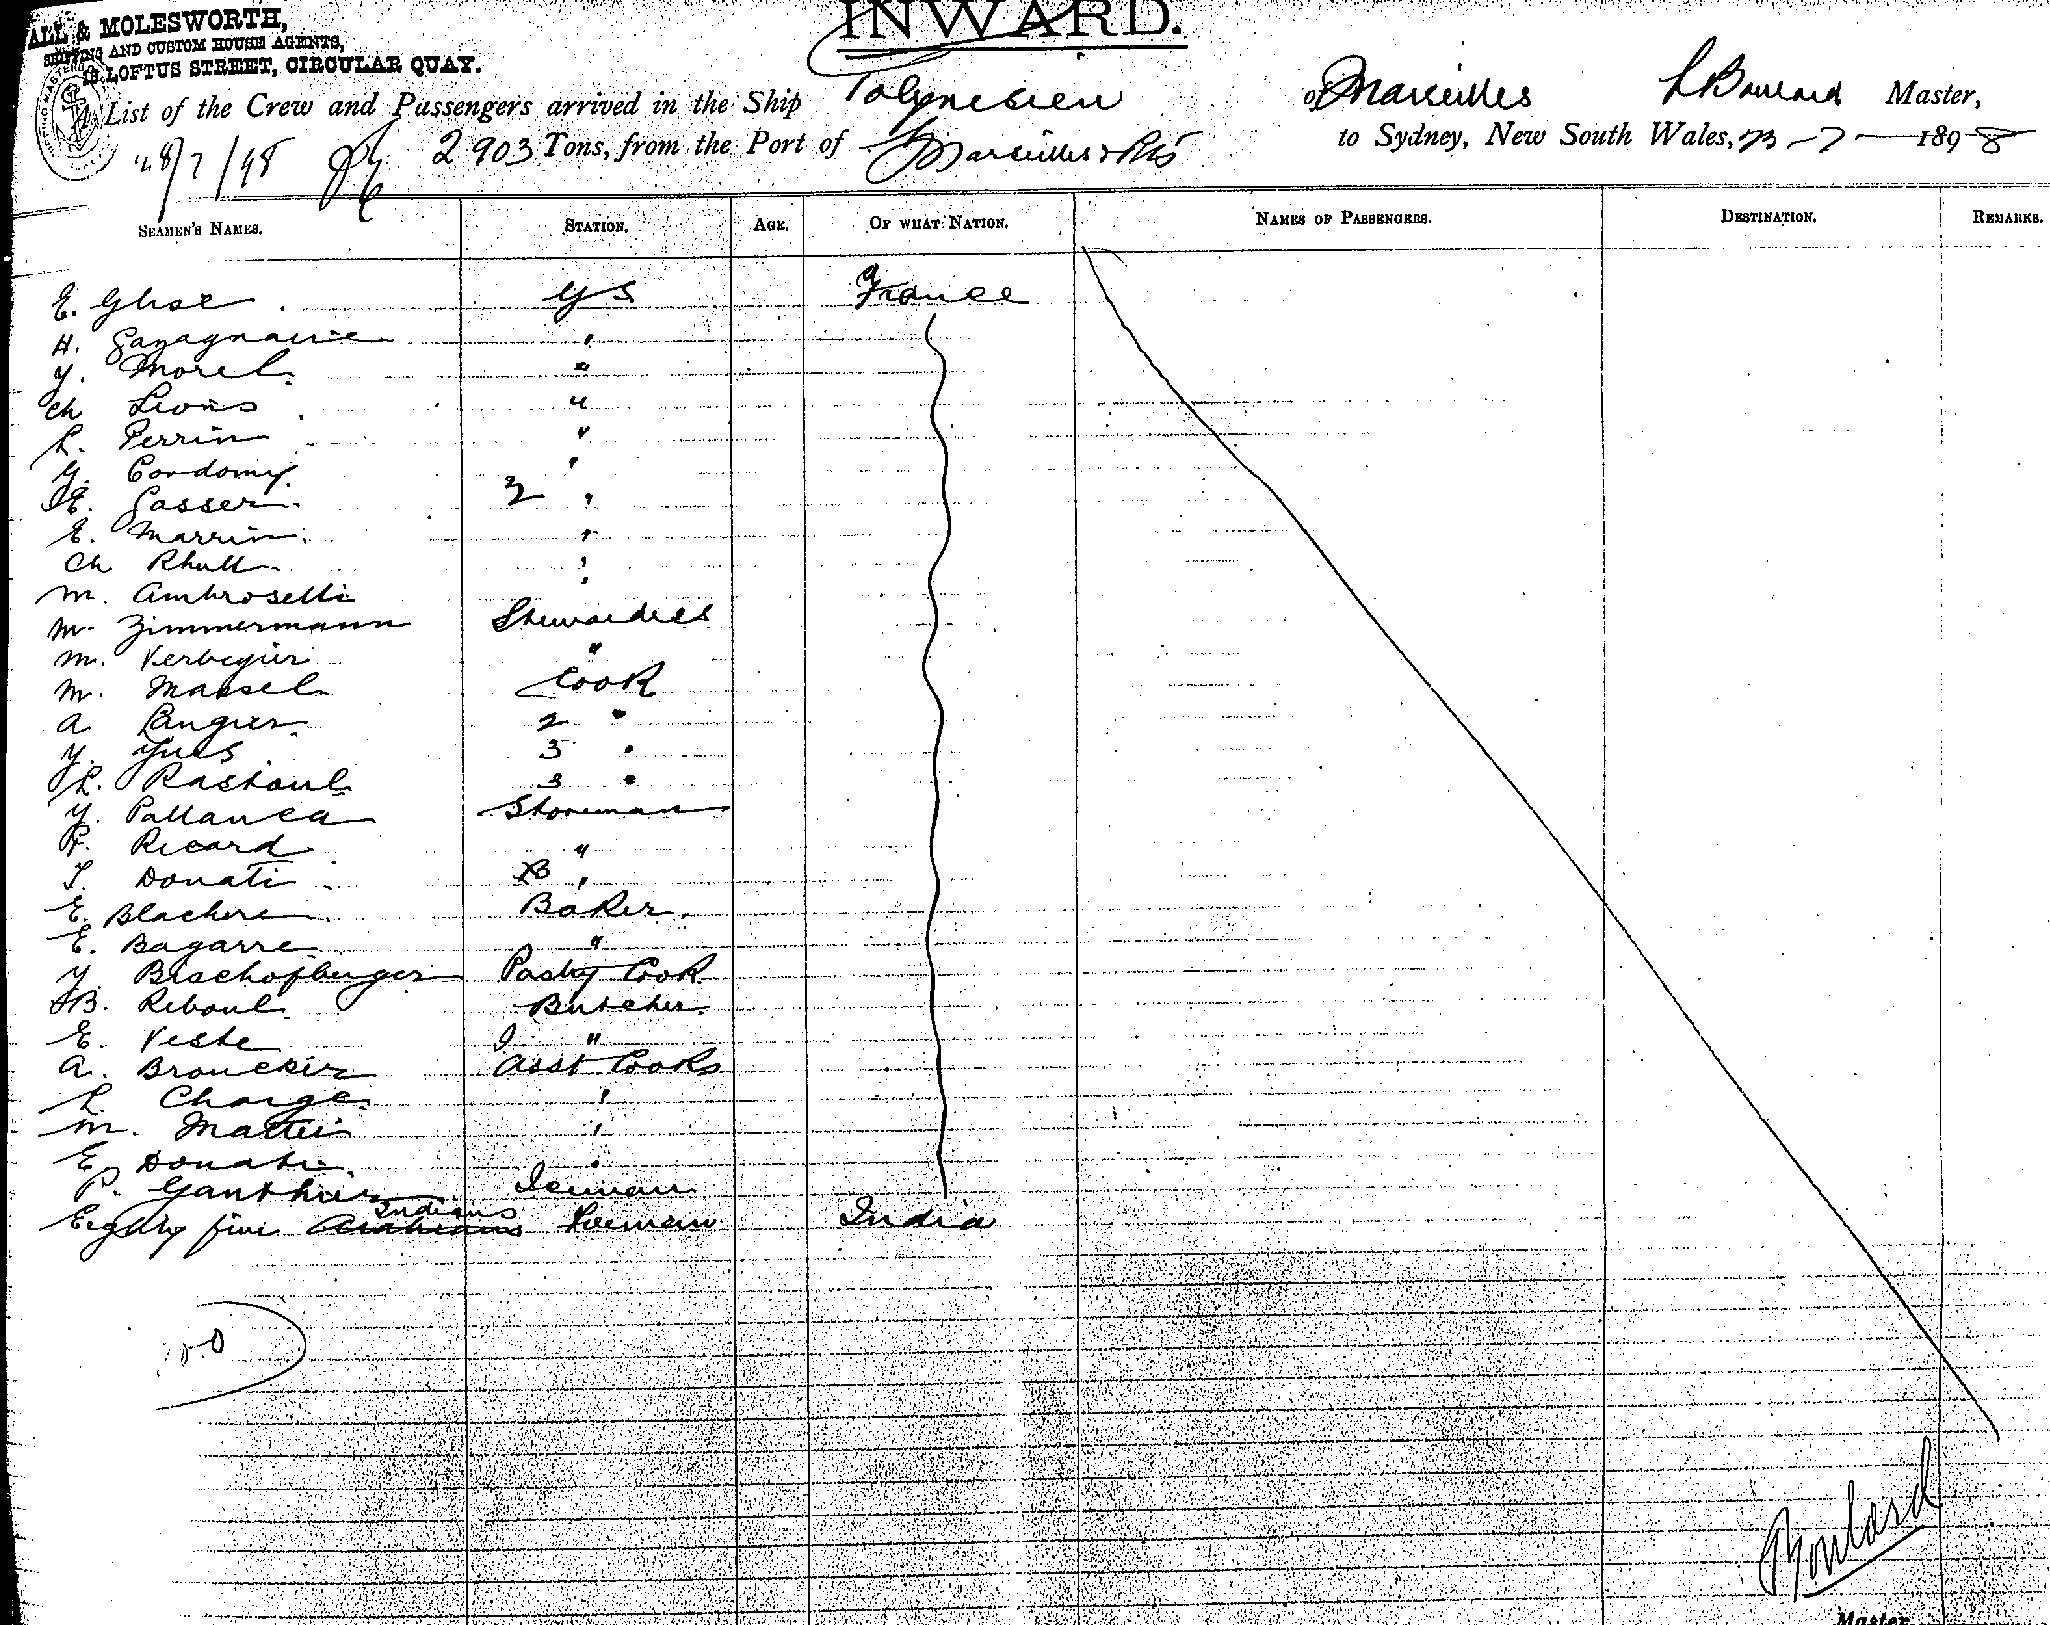 ALL & MOLESWORTH,
SHIPPING AND CUSTOM HOUSE AGENTS,
LOFTUS STREET, CIRCULAR QUAY.
INWARD.
List of the Crew and Passengers arrived in the Ship Polynesien of Marseilles L Boulard Master,
28/7/98 2903 Tons, from the Port of Marseilles & Pts to Sydney, New South Wales, 23-7-1898
SEAMEN'S NAMES. STATION. AGE. OF WHAT NATION. NAMES OF PASSENGERS. DESTINATION. REMARKS.
E. Glise GS France
H. Gazagnaire "
J. Morel "
Ch Lions "
L. Perrin "
G. Cordomy "
E. Gasser 3 "
E. Marrin "
Ch "
M. Ambroselli "
M. Zimmermann Stewardess
M. "
M. Massel Cook
A 2 "
J. Yves 3 "
L. Rastoul 3 "
J. Pallanca Storeman
F. Ricard "
T. Donati "
E. Blachere Baker
E. Bagarre "
J. Bischofberger Pastry Cook
B. Reboul Butcher
E. Veste "
A. Asst Cooks
L. Charge "
M. Mattei "
E. Donati "
P. Ganthier
Indians
Eighty five Fireman India
Boulard
Master